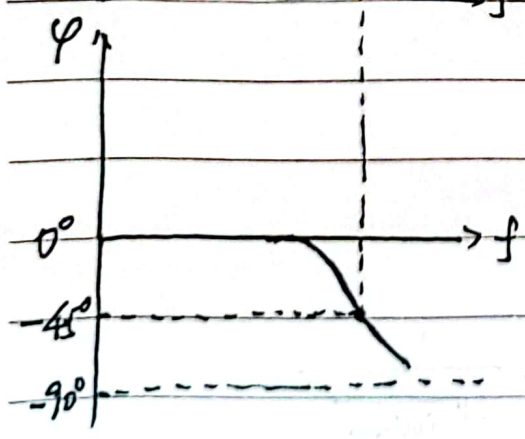 f
φ
0° f
-45°
-90°